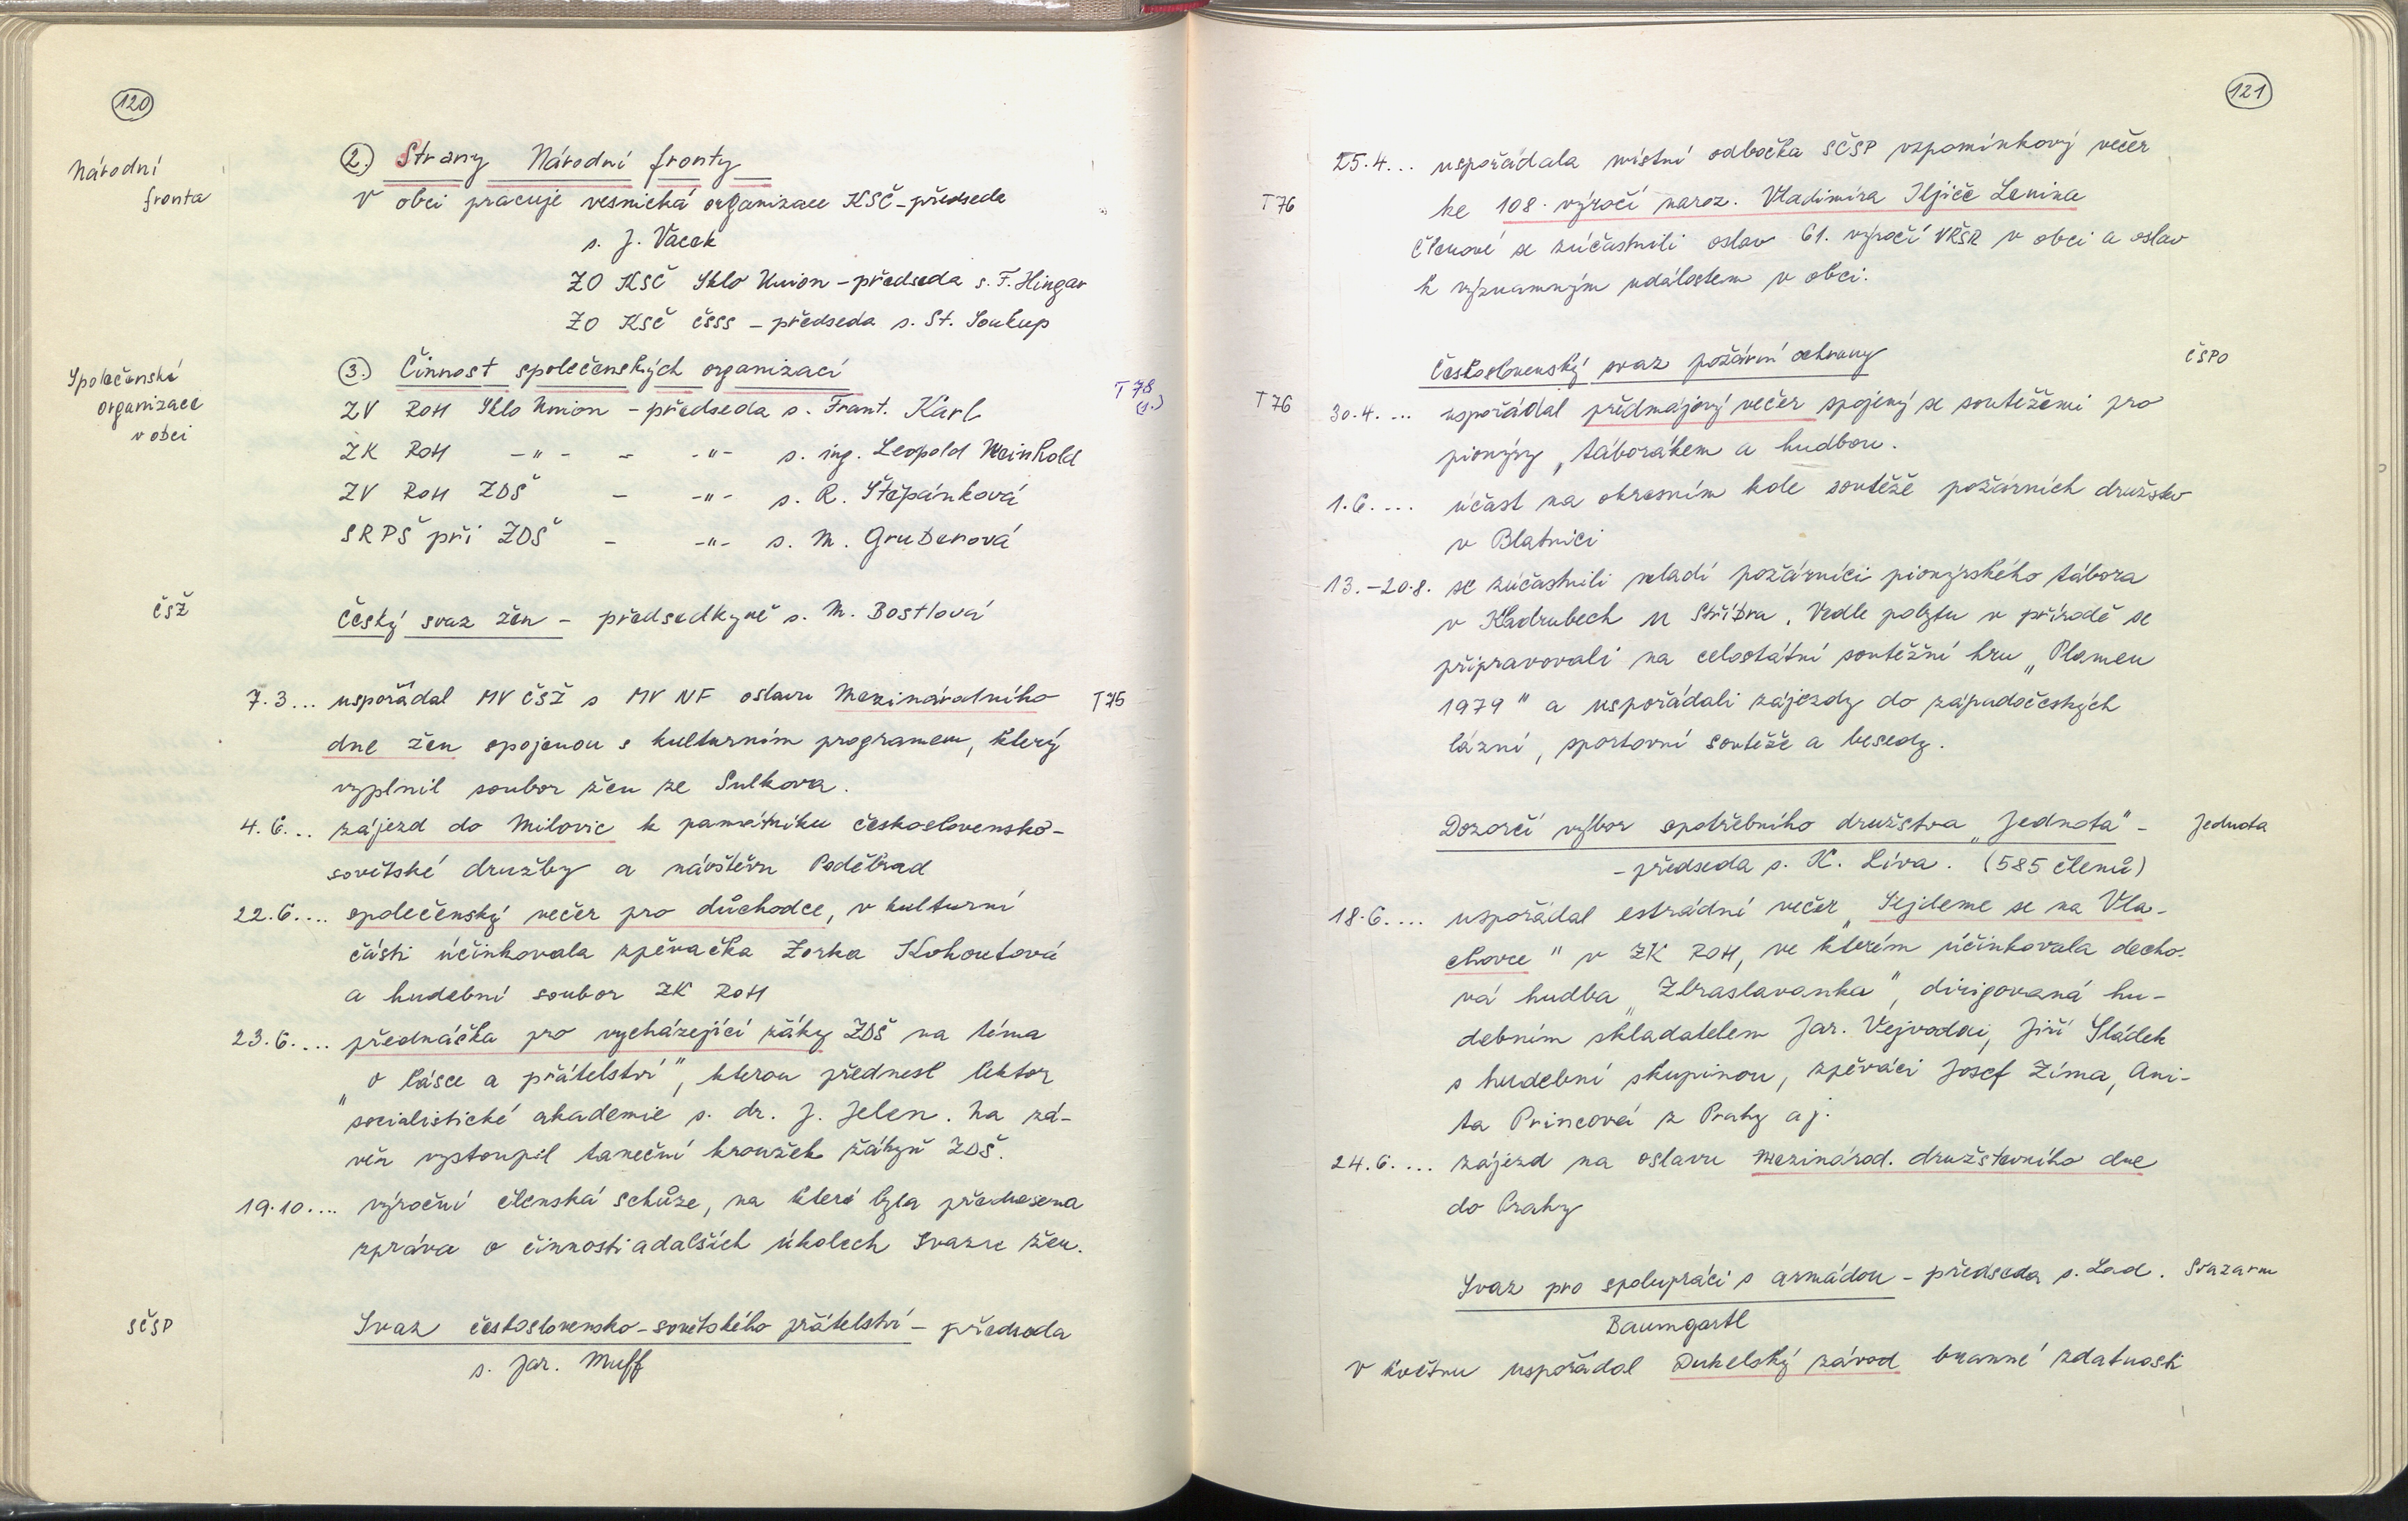 120
Národní
fronta
2.) Strany Národní fronty
V obci pracuje vesnická organizace KSČ - předseda
s. J. Vacek
ZO KSČ Sklo Union - předseda s. F. Hingar
ZO KSČ ČSSS - předseda s. St. Soukup
Společenské
organizace
v obci
3.) Činnost společenských organizací
T 78
(1.)
ZV ROH Sklo Union - předseda s. Frant. Karl
ZK ROH -"- - -"- s. ing. Leopold Weinhold
ZV ROH ZDŠ - -"- s. R. Štěpánková
SRPŠ při ZDŠ - -"- s. M. Gruberová
ČSŽ
Český svaz žen - předsedkyně s. M. Bostlová
7.3... uspořádal MV ČSŽ s MV NF oslavu Mezinárodního T75
dne žen spojenou s kulturním programem, který
vyplnil soubor žen ze Sulkova.
4.6... zájezd do Milovic k památníku československo-
sovětské družby a návštěvu Poděbrad
22.6.... společenský večer pro důchodce, v kulturní
části účinkovala zpěvačka Zorka Kohoutová
a hudební soubor ZK ROH
23.6.... přednáška pro vycházející žáky ZDŠ na téma
„o lásce a přátelství", kterou přednesl lektor
socialistické akademie s. dr. J. Jelen. Na zá-
věr vystoupil taneční kroužek žákyň ZDŠ.
19.10.... výroční členská schůze, na které byla přednesena
zpráva o činnosti a dalších úkolech Svazu žen.
SČSP
Svaz československo-sovětského přátelství - předseda
s. Jar. Muff
121
25.4... uspořádala místní odbočka SČSP vzpomínkový večer
T76 ke 108. výročí naroz. Vladimíra Iljiče Lenina
Členové se zúčastnili oslav 61. výročí VŘSR v obci a oslav
k významným událostem v obci.
Československý svaz požární ochrany ČSPO
T76 30.4.... uspořádal předmájový večer spojený se soutěžemi pro
pionýry, táborákem a hudbou.
1.6.... účast na okresním kole soutěže požárních družstev
v Blatnici
13.-20.8. se zúčastnili mladí požárníci pionýrského tábora
v Kladrubech u Stříbra. Vedle pobytu v přírodě se
připravovali na celostátní soutěžní hru „Plamen
1979" a uspořádali zájezdy do západočeských
lázní, sportovní soutěže a besedy.
Dozorčí výbor spotřebního družstva „Jednota" - Jednota
- předseda s. K. Líva. (585 členů)
18.6.... uspořádal estrádní večer „Sejdeme se na Vla-
chovce" v ZK ROH, ve kterém účinkovala decho-
vá hudba „Zbraslavanka", dirigovaná hu-
debním skladatelem Jar. Vejvodou, Jiří Sládek
s hudební skupinou, zpěváci Josef Zíma, Ani-
ta Princová z Prahy aj.
24.6.... zájezd na oslavu Mezinárod. družstevního dne
do Prahy
Svaz pro spolupráci s armádou - předseda s. Lad. Svazarm
Baumgartl
V květnu uspořádal Dukelský závod branné zdatnosti